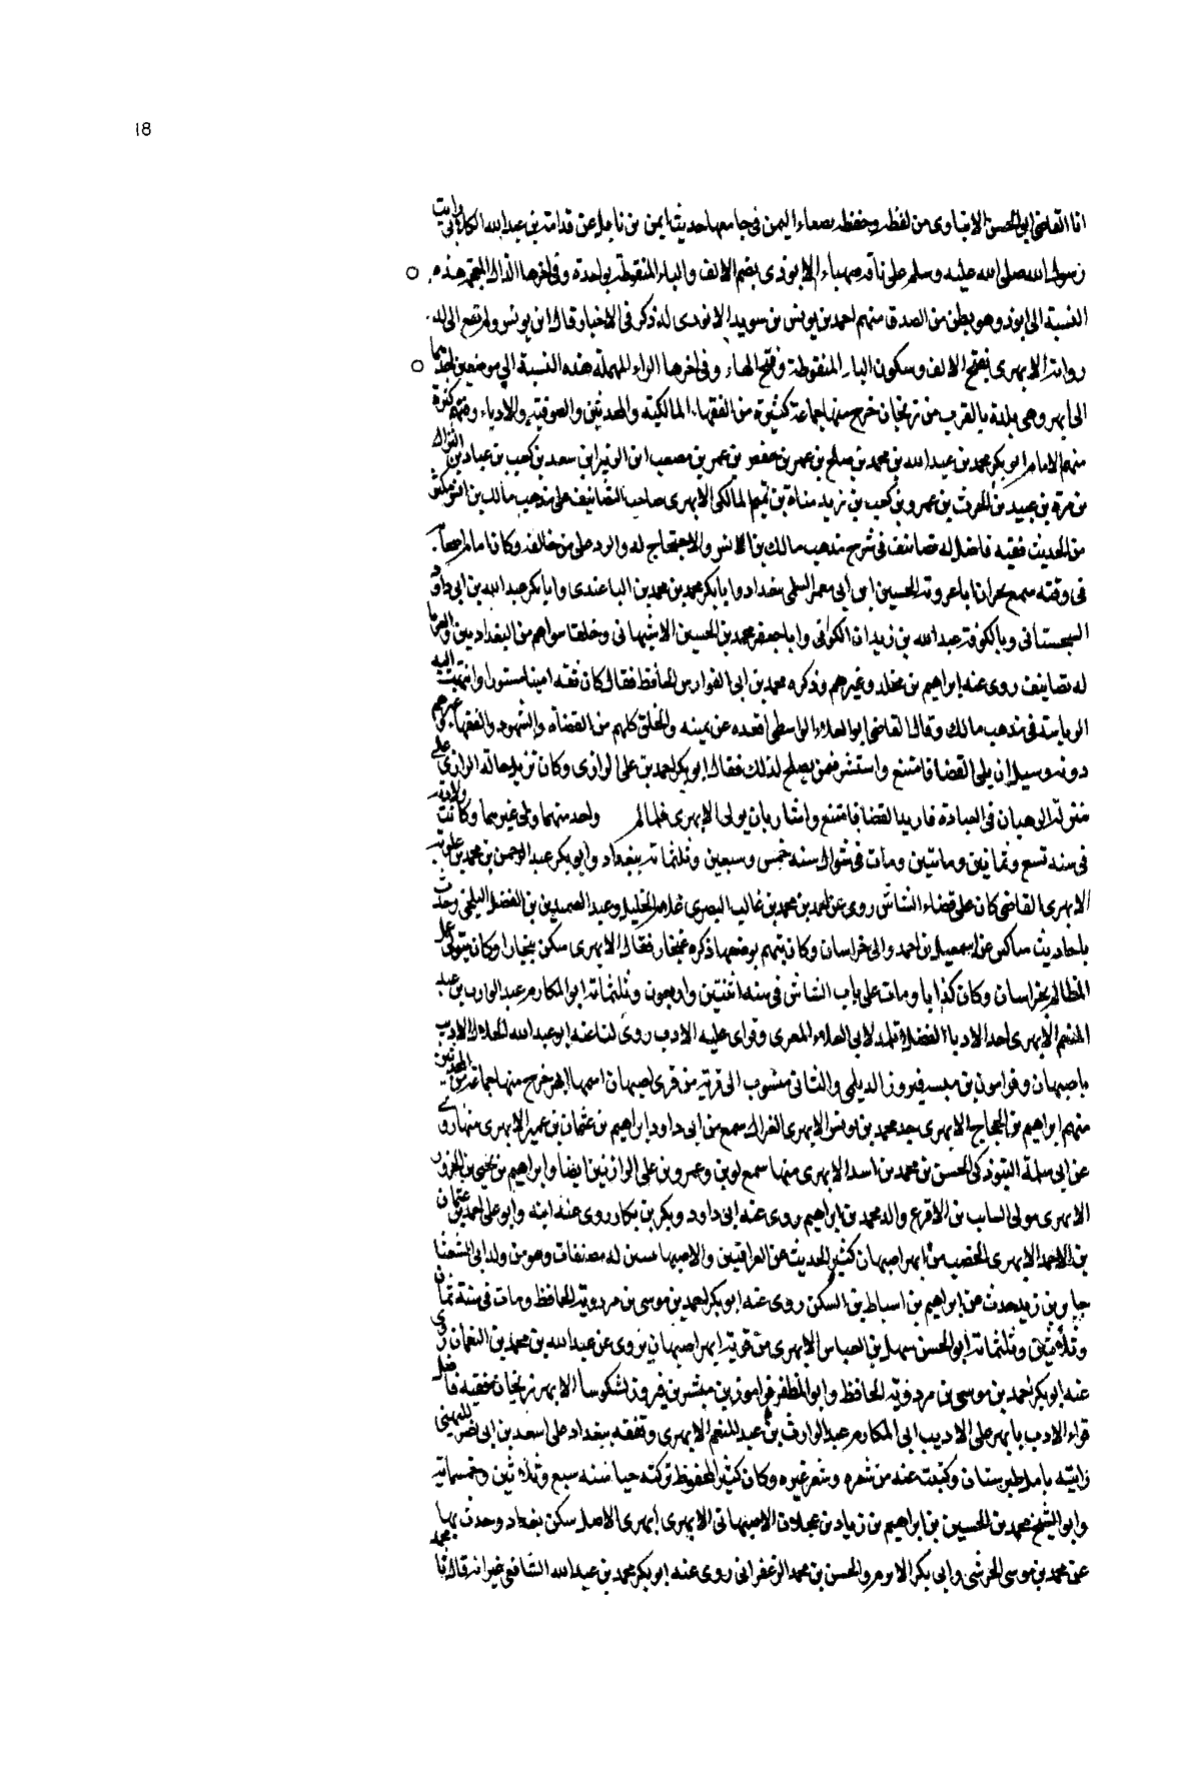 18
انا القاضى ابو الحسن الابناوى من لفظه وحفظه بصنعاء اليمن فى جامعها حديث ايمن بن نابل عن قدامة بن عبد الله الكلابى رايت
رسول الله صلى الله عليه وسلم على ناقة صهباء الابوذى بضم الالف والباء المنقوطة بواحدة وفى اخرها الذال المعجمة هذه
النسبة الى ابوذ وهو بطن من الصدف منهم احمد بن يونس بن سويد الابوذى له ذكر فى الاخبار قال ابن يونس ولم تقع الى له
رواية الابهرى بفتح الالف وسكون الباء المنقوطة وفتح الهاء وفى اخرها الراء المهملة هذه النسبة الى موضعين احدهما
الى ابهر وهى بلدة بالقرب من زنجان خرج منها جماعة كثيرة من الفقهاء المالكية والمحدثين والصوفية والادباء وفيهم كثرة
منهم الامام ابو بكر محمد بن عبد الله بن محمد بن صلح بن عمر بن حفص بن عمر بن مصعب ابن الزبير ابن سعد بن كعب بن عباد بن النزال
بن مرة بن عبيد بن الحرث بن عمرو بن كعب بن زيد مناة بن تميم المالكى الابهرى صاحب التصانيف على مذهب مالك بن انس مكثر
من الحديث فقيه فاضل له تصانيف فى شرح مذهب مالك بن انس والاحتجاج له والرد على من خالفه وكان امام اصحابه
فى وقته سمع بحران ابا عروبة الحسين ابن ابى معشر السلمى ببغداد وابا بكر محمد بن محمد بن الباغندى وابا بكر عبد الله بن ابى داود
السجستانى وبالكوفة عبد الله بن زيدان الكوفى وابا جعفر محمد بن الحسين الاشنانى وخلقا سواهم من البغداديين والغرباء
له تصانيف روى عنه ابراهيم بن مخلد وغيرهم وذكره محمد بن ابى الفوارس الحافظ فقال كان ثقة امينا مستورا وانتهت اليه
الرياسة فى مذهب مالك وقال القاضى ابو العلاء الواسطى اقعده عن يمينه والخلق كلهم من القضاة والشهود والفقهاء وغيرهم
دونه وسيل ان يلى القضا فامتنع واستشير فيمن يصلح لذلك فقال ابو بكر احمد بن على الرازى وكان تزيد حالة الرازى على
منزلة الرهبان فى العبادة فاريد القضا فامتنع واشار بان يولى الابهرى فلما لم واحد منهما ولى غيرهما وكانت ولادته
فى سنة تسع وثمانين ومائتين ومات فى شوال سنة خمس وسبعين وثلثمائة ببغداد وابو بكر عبد الرحمن بن محمد بن علويه
الابهرى القاضى كان على قضاء الشاش روى عن احمد بن محمد بن غالب البصرى غلام الخليل وعبد الصمد بن الفضل البلخى وحدث
باحاديث مناكير عن اسمعيل بن احمد والى خراسان وكان يتهم بوضعها ذكره غنجار فقال الابهرى سكن بخارا وكان يتولى عمل
المظالم بخراسان وكان كذابا ومات على باب الشاش فى سنة اثنتين واربعون وثلثمائة ابو المكارم عبد الوارث بن عبد
المنعم الابهرى احد الادبا الفضلا تلمذ لابى العلاء المعرى وقراى عليه الادب روى لنا عنه ابو عبد الله الخلال الاديب
باصبهان وفرامرز بن فيروز الديلمى والثانى منسوب الى قرية من قرى اصبهان اسمها ابهر خرج منها جماعة من المحدثين
منهم ابراهيم بن الحجاج الابهرى جد محمد بن يونس الابهرى الغزال سمع من ابى داود ابراهيم بن عثمان بن عمير الابهرى منها روى
عن ابى سلمة التبوذكى الحسن بن محمد بن اسد الابهرى منها سمع لوين وعمرو بن على الرازيين ايضا وابراهيم بن يحيى بن الحزور
الابهرى مولى السايب بن الاقرع والد محمد بن ابراهيم روى عنه ابى داود وبكر بن بكار روى عنه ابنه وابو على احمد بن عثمان
بن الاحمد الابهرى الخصيب من ابهر اصبهان كثير الحديث عن العراقيين والاصبهانيين له مصنفات وهو من ولد ابى الشعثا
جابر بن زيد حدث عن ابراهيم بن اسباط بن السكن روى عنه ابو بكر احمد بن موسى بن مردويه الحافظ ومات فى سنة ثمان
وثلاثين وثلثمائة ابو الحسن سهل بن العباس الابهرى من قرية ابهر اصبهان يروى عن عبد الله بن محمد بن النعمان روى
عنه ابو بكر احمد بن موسى بن مردويه الحافظ وابو المظفر فرامرز بن مبشر بن فيروز الابهرى زنجان فقيه فاضل
قراء الادب بابهر على الاديب ابى المكارم عبد الوارث بن عبد المنعم الابهرى وتفقه ببغداد على اسعد بن ابى نصر الميهنى
رايته بامل طبرستان وكتبت عنه من شعره وشعر غيره وكان كثير المحفوظ تركته حيا سنة سبع وثلاثين وخمسمائة
وابو الشيخ محمد بن الحسين بن ابراهيم بن زياد بن عجلان الاصبهانى الابهرى ابهرى الاصل سكن بغداد وحدث بها
عن محمد بن موسى الحرشى وابى بكر الاثرم والحسن بن محمد الزعفرانى روى عنه ابو بكر محمد بن عبد الله الشافعى غير انه قال انا محمد